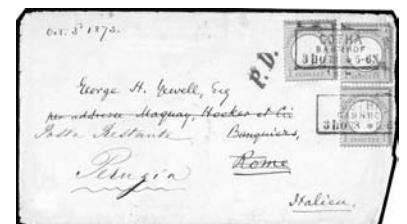 Oct. 3d 1873.
P.D.
GOTHA
BAHNHOF
3 10 73 * 5-6N
BAHNHOF
George H. Yewell, Esq
per addresse Maquay, Hooker et Cie
Poste Restante Banquiers,
Rome
Perugia
Italien.